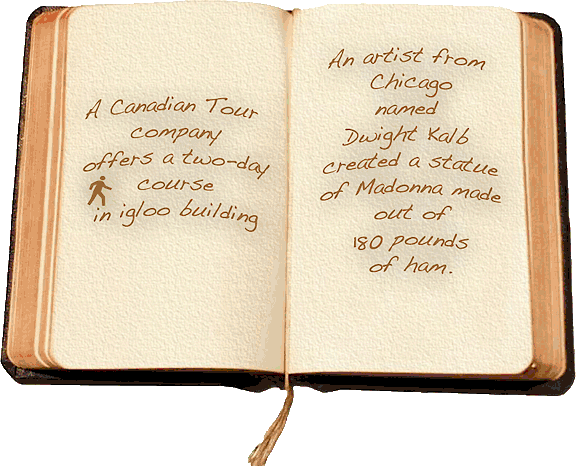 A Canadian Tour
company
offers a two-day
course
in igloo building
An artist from
Chicago
named
Dwight Kalb
created a statue
of Madonna made
out of
180 pounds
of ham.